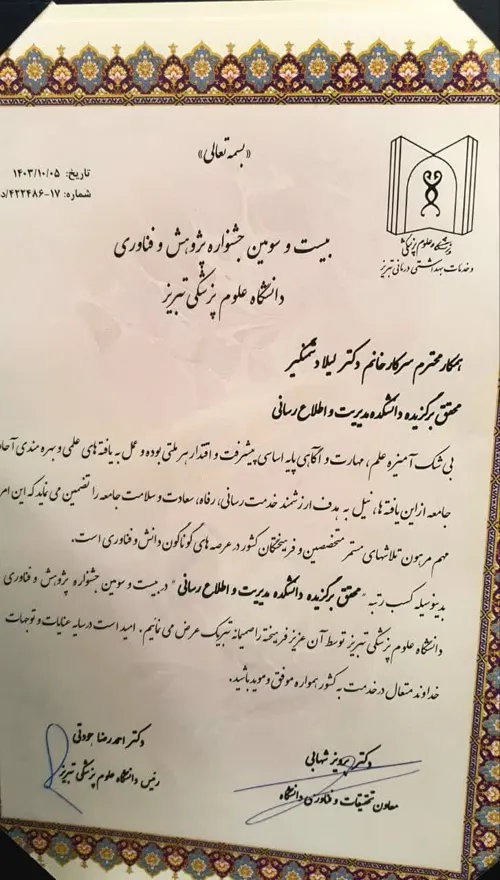 «بسمه تعالی»
تاریخ: ۱۴۰۳/۱۰/۰۵
شماره: ۱۷-۴۲۲۴۸۶/د
دانشگاه علوم پزشکی
و خدمات بهداشتی درمانی تبریز
بیست و سومین جشنواره پژوهش و فناوری
دانشگاه علوم پزشکی تبریز
همکار محترم سرکار خانم دکتر لیلا دشمنگیر
محقق برگزیده دانشکده مدیریت و اطلاع رسانی
بی شک آمیزه علم، مهارت و آگاهی پایه اساسی پیشرفت و اقتدار هر ملتی بوده و عمل به یافته های علمی و بهره مندی آحاد
جامعه از این یافته ها، نیل به هدف ارزشمند خدمت رسانی، رفاه، سعادت و سلامت جامعه را تضمین می نماید که این امر
مهم مرهون تلاشهای مستمر متخصصین و فرهیختگان کشور در عرصه های گوناگون دانش و فناوری است.
بدینوسیله کسب رتبه "محقق برگزیده دانشکده مدیریت و اطلاع رسانی" در بیست و سومین جشنواره پژوهش و فناوری
دانشگاه علوم پزشکی تبریز توسط آن عزیز فرهیخته را صمیمانه تبریک عرض می نمایم. امید است در سایه عنایات و توجهات
خداوند متعال در خدمت به کشور همواره موفق و موید باشید.
دکتر پرویز شهابی
معاون تحقیقات و فناوری دانشگاه
دکتر احمدرضا جودتی
رئیس دانشگاه علوم پزشکی تبریز